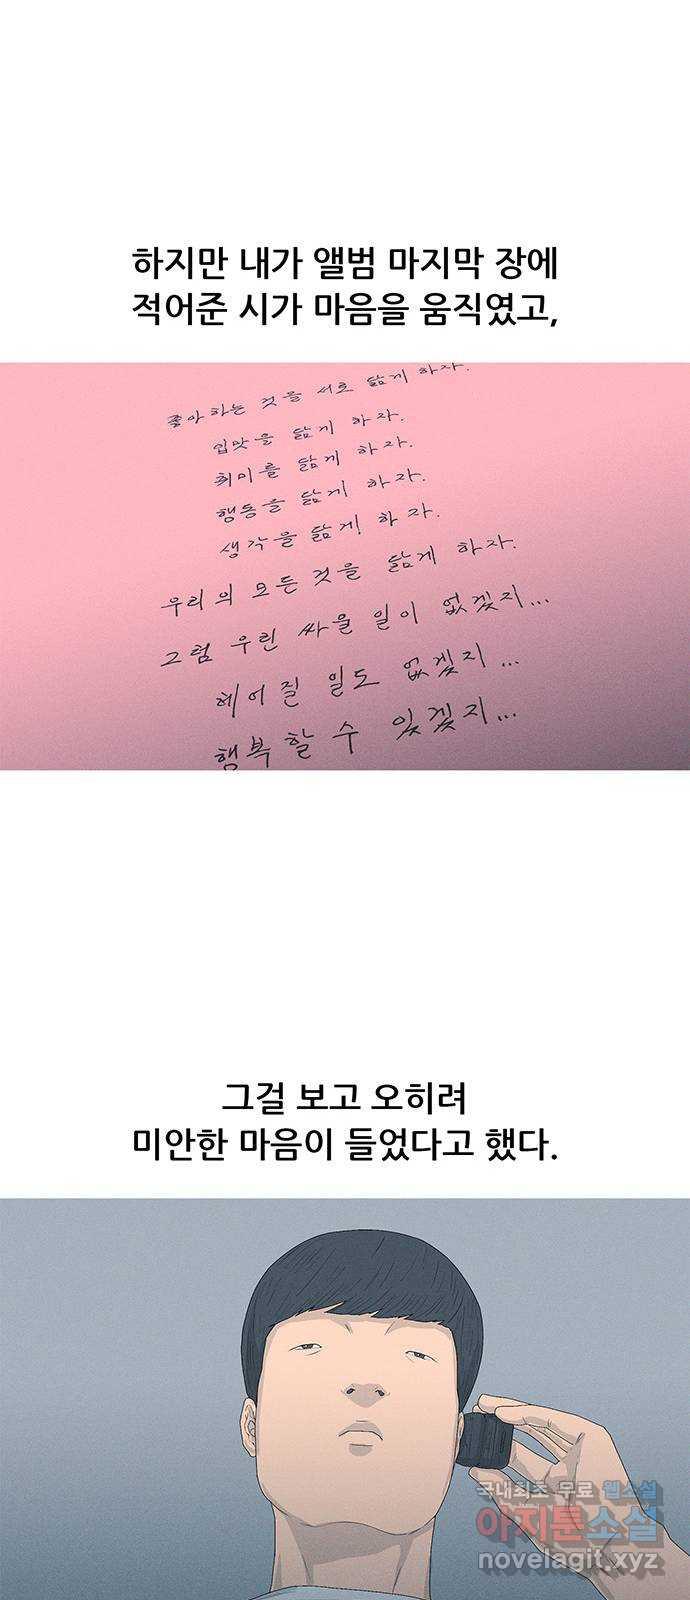 하지만 내가 앨범 마지막 장에
적어준 시가 마음을 움직였고,
좋아하는 것을 서로 닮게 하자.
입맛을 닮게 하자.
취미를 닮게 하자.
행동을 닮게 하자.
생각을 닮게 하자.
우리의 모든 것을 닮게 하자.
그럼 우린 싸울 일이 없겠지...
헤어질 일도 없겠지...
행복할 수 있겠지...
그걸 보고 오히려
미안한 마음이 들었다고 했다.
국내최초 무료 웹소설
아지툰소설
novelagit.xyz